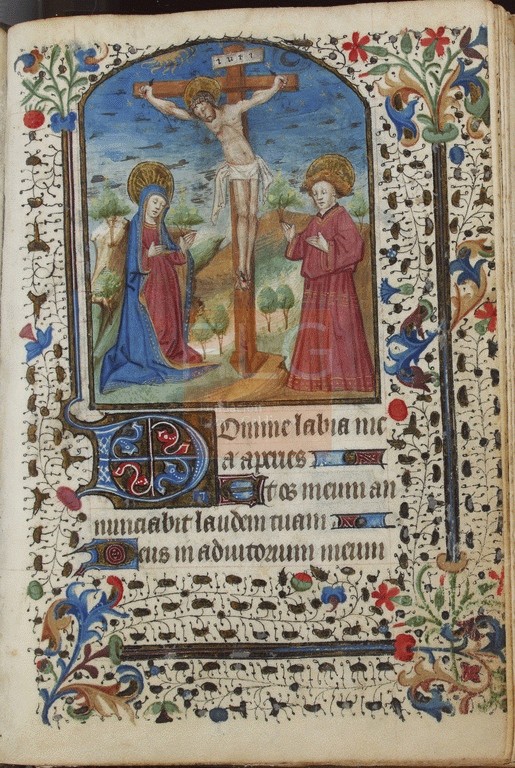 inri
Domine labia me
a aperies
Et os meum an
nunciabit laudem tuam
Deus in adiutorium meum